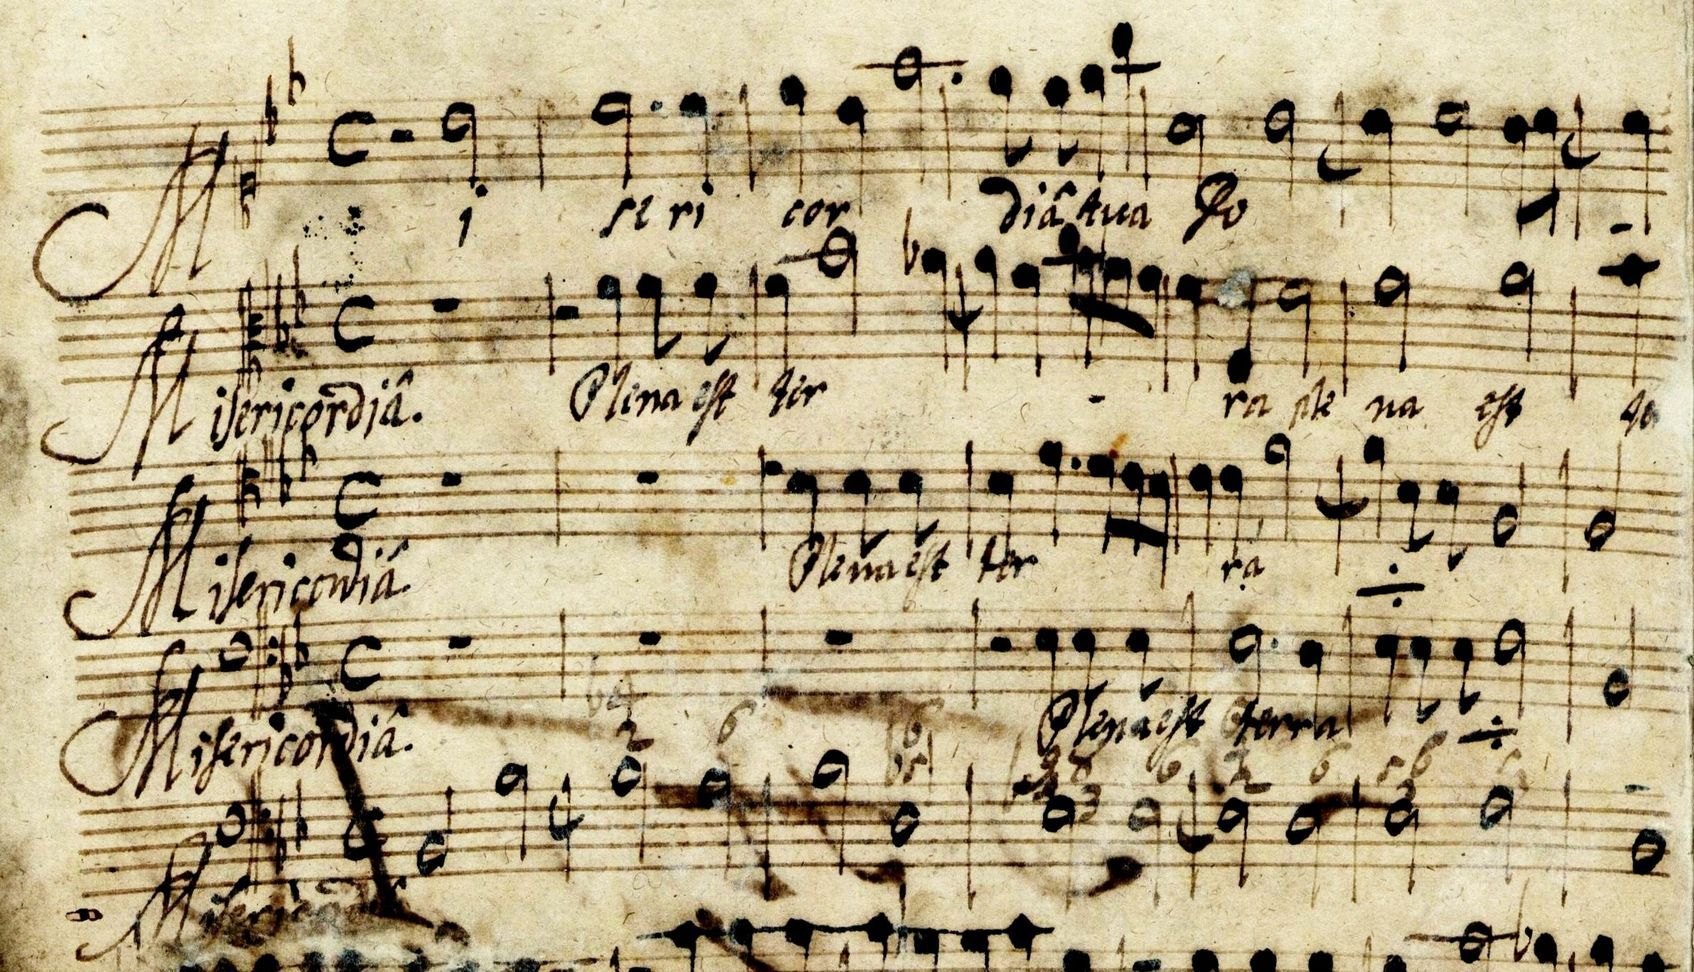 M i se ri cor diâ tua Do
Misericordiâ. Plena est ter - ra ple na est te
Misericordiâ. Plena est ter ra
Misericordiâ. Plena est terra
2 6 6
3 6 2 6 5 6